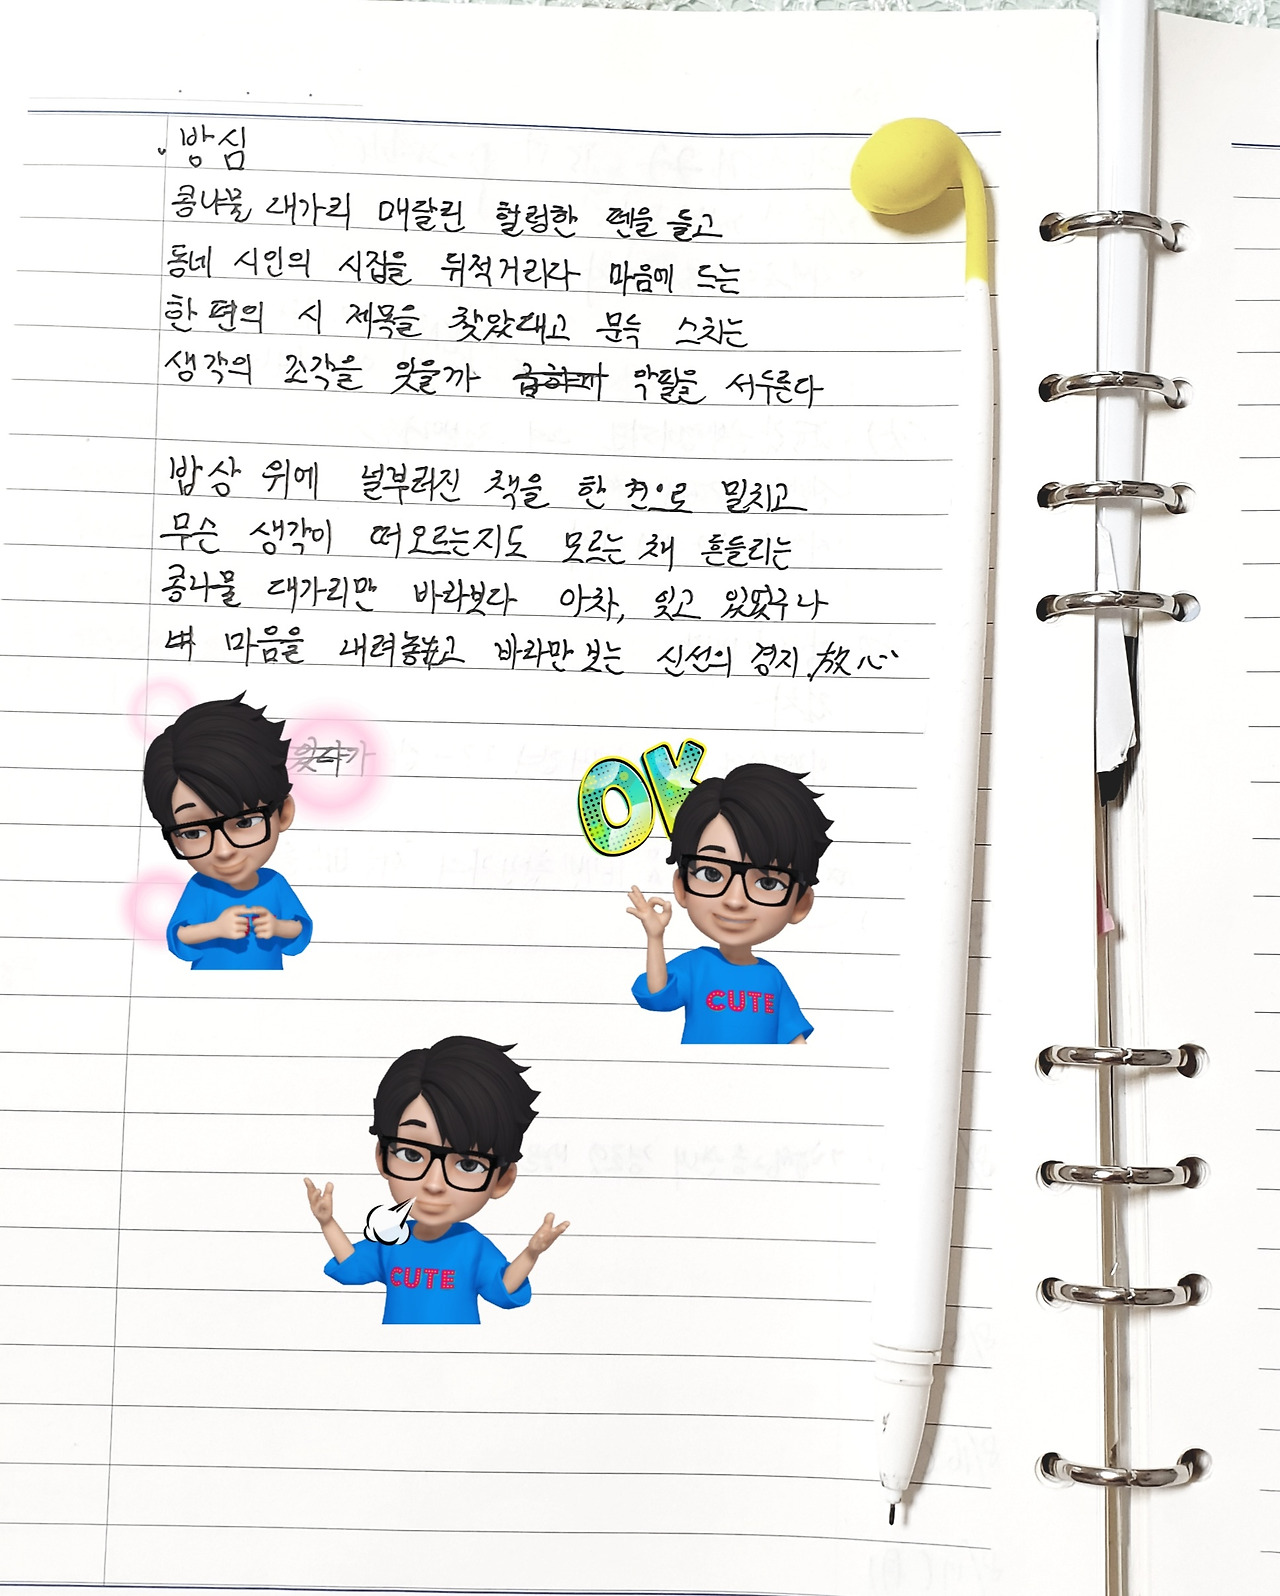 방심
콩나물 대가리 매달린 헐렁한 펜을 들고
동네 시인의 시집을 뒤적거리다 마음에 드는
한 편의 시 제목을 찾았대고 문득 스치는
생각의 조각을 잊을까 급하까 악필을 서두른다
밥상 위에 널부러진 책을 한 켠으로 밀치고
무슨 생각이 떠오르는지도 모르는 채 흔들리는
콩나물 대가리만 바라보다 아차, 잊고 있었구나
마음을 내려놓고 바라만 보는 신선의 경지, 放心
OK
CUTE
CUTE